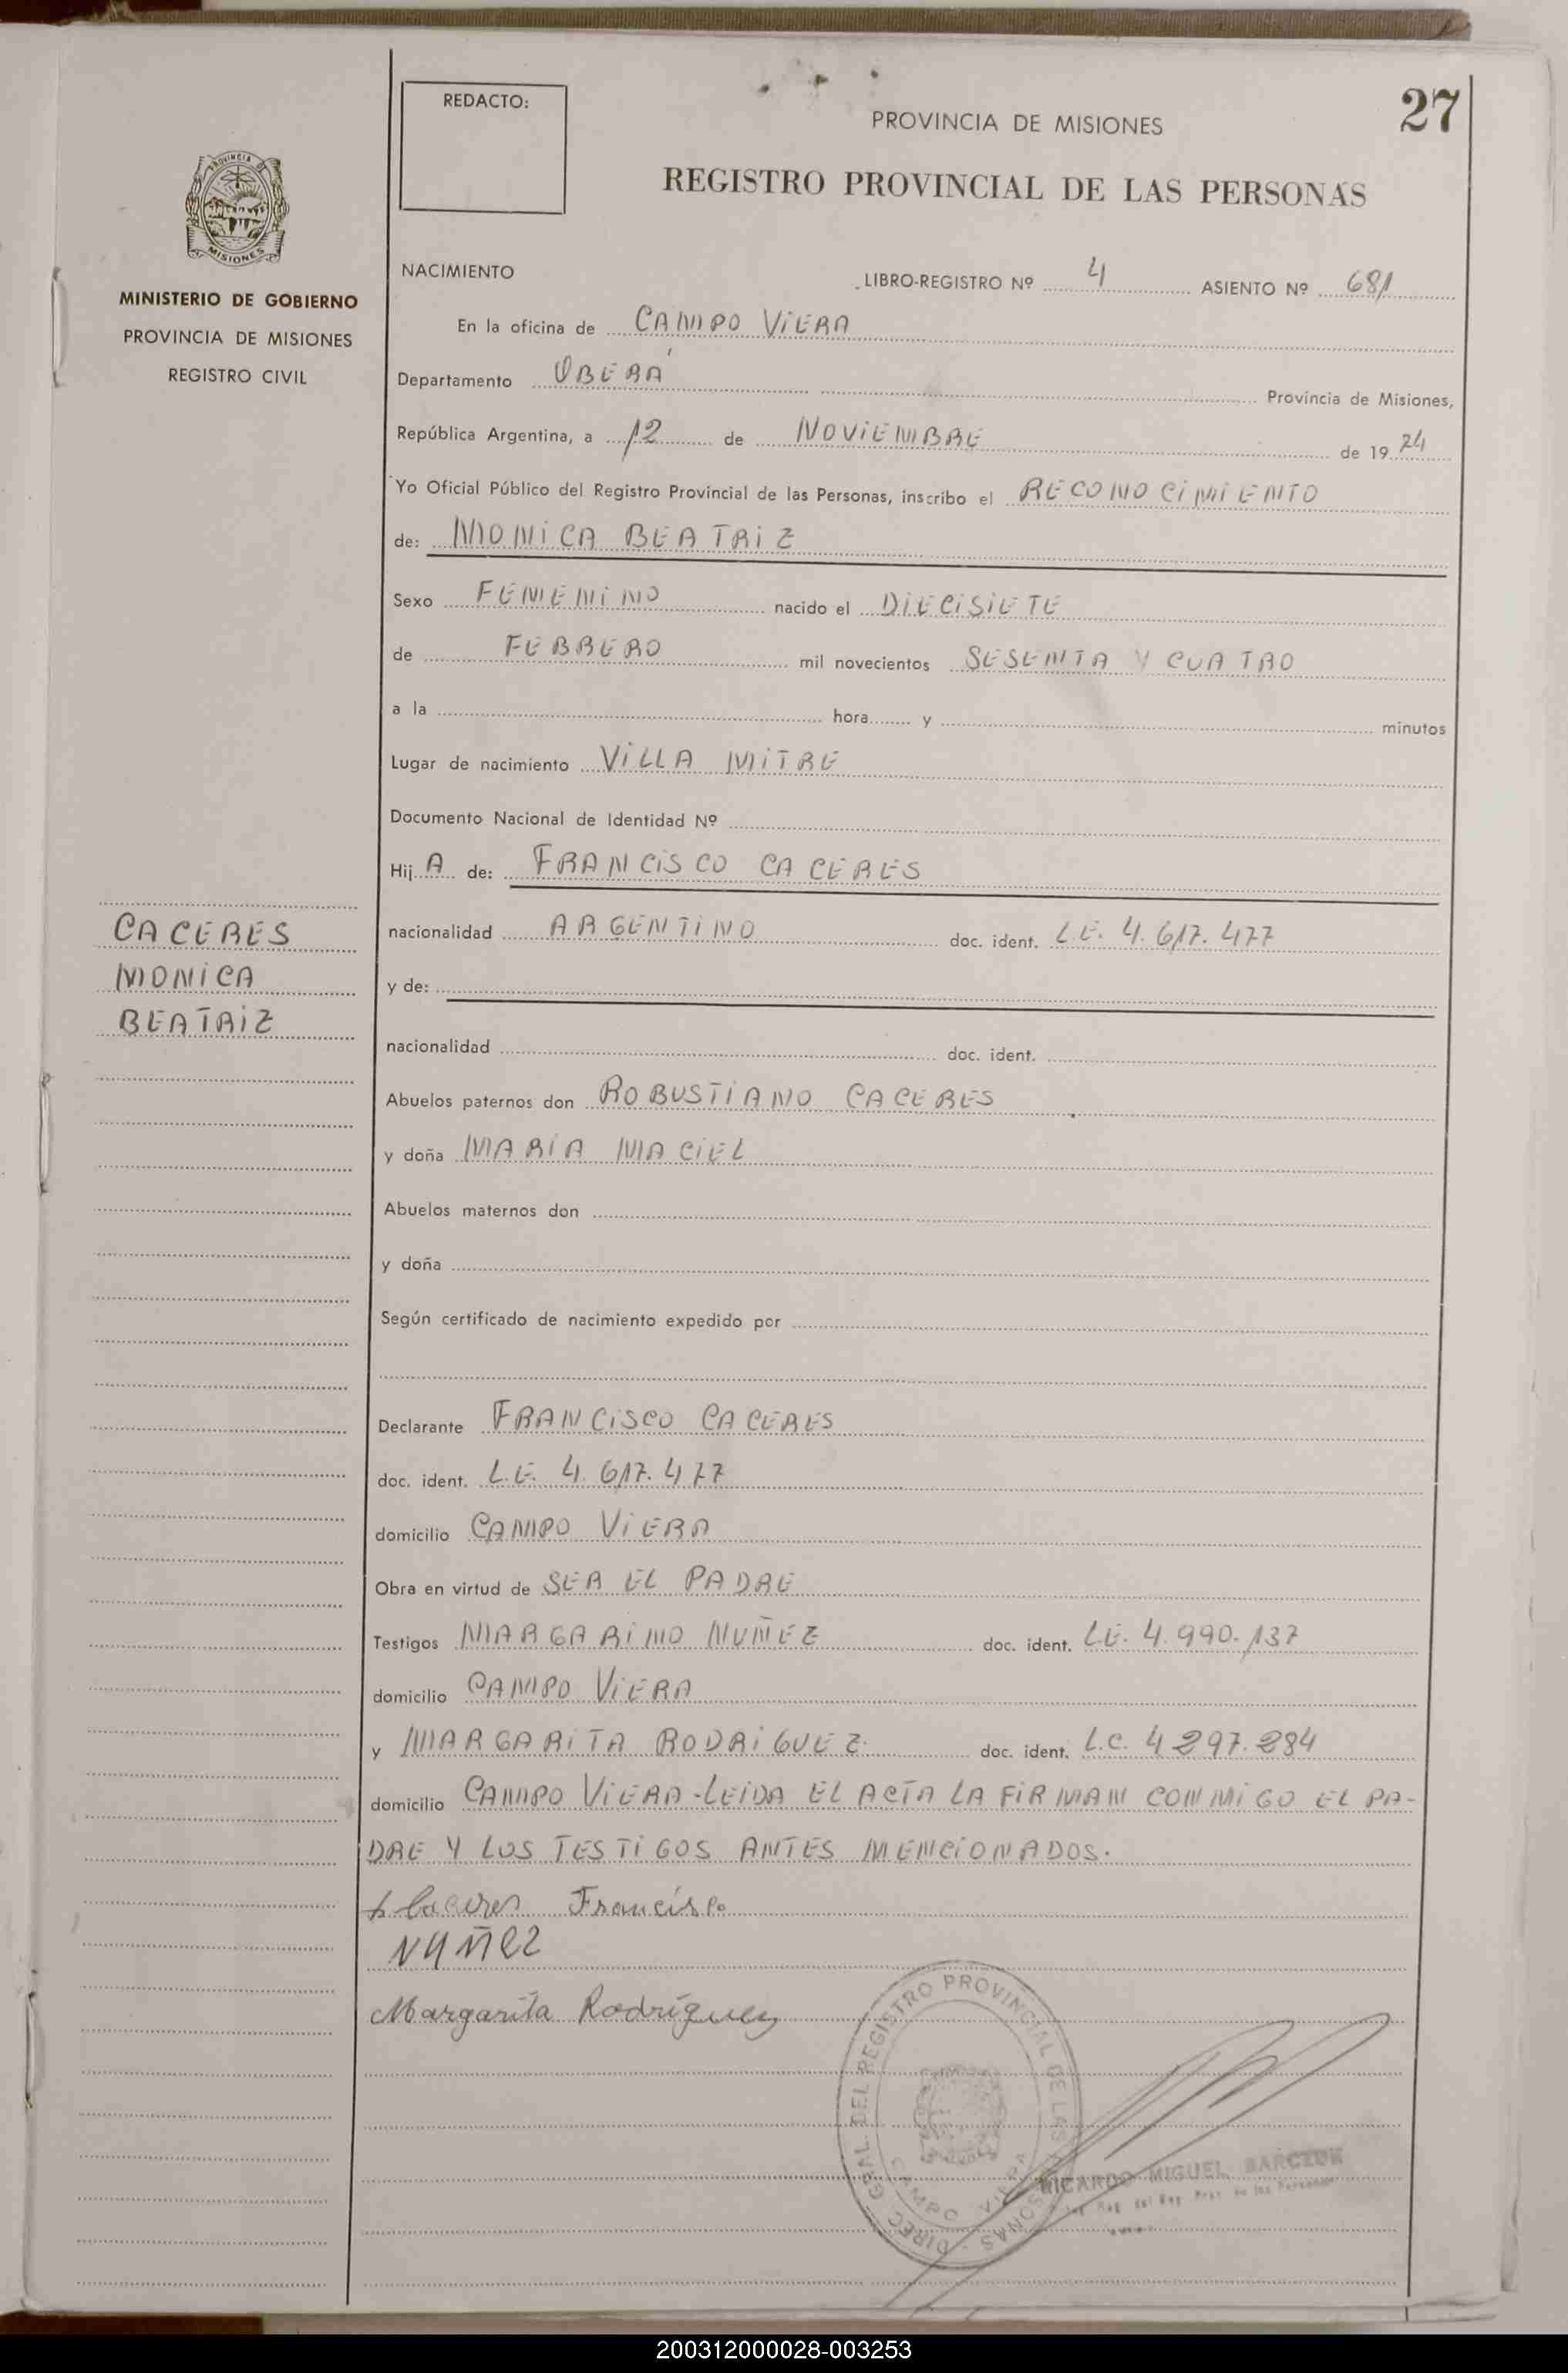 REDACTO:
PROVINCIA DE MISIONES
27
REGISTRO PROVINCIAL DE LAS PERSONAS
PROVINCIA DE
MISIONES
MINISTERIO DE GOBIERNO
PROVINCIA DE MISIONES
REGISTRO CIVIL
NACIMIENTO LIBRO-REGISTRO Nº 4 ASIENTO Nº 681
En la oficina de CAMPO VIERA
Departamento OBERÁ Provincia de Misiones,
República Argentina, a 12 de NOVIEMBRE de 1974
Yo Oficial Público del Registro Provincial de las Personas, inscribo el RECONOCIMIENTO
de: MONICA BEATRIZ
Sexo FEMENINO nacido el DIECISIETE
de FEBRERO mil novecientos SESENTA Y CUATRO
a la hora y minutos
Lugar de nacimiento VILLA MITRE
Documento Nacional de Identidad Nº
Hij A de: FRANCISCO CACERES
nacionalidad ARGENTINO doc. ident. L.E. 4.617.477
y de:
nacionalidad doc. ident.
CACERES
MONICA
BEATRIZ
Abuelos paternos don ROBUSTIANO CACERES
y doña MARIA MACIEL
Abuelos maternos don
y doña
Según certificado de nacimiento expedido por
Declarante FRANCISCO CACERES
doc. ident. L.E. 4.617.477
domicilio CAMPO VIERA
Obra en virtud de SER EL PADRE
Testigos MARGARINO NUÑEZ doc. ident. L.E. 4.990.137
domicilio CAMPO VIERA
y MARGARITA RODRIGUEZ doc. ident. L.C. 4297.284
domicilio CAMPO VIERA-LEIDA EL ACTA LA FIRMAN CONMIGO EL PA-
DRE Y LOS TESTIGOS ANTES MENCIONADOS.
Caceres Francisco
NUÑEZ
Margarita Rodríguez
DIREC. GRAL. DEL REGISTRO PROVINCIAL DE LAS PERSONAS
CAMPO VIERA
RICARDO MIGUEL BARCZUK
200312000028-003253